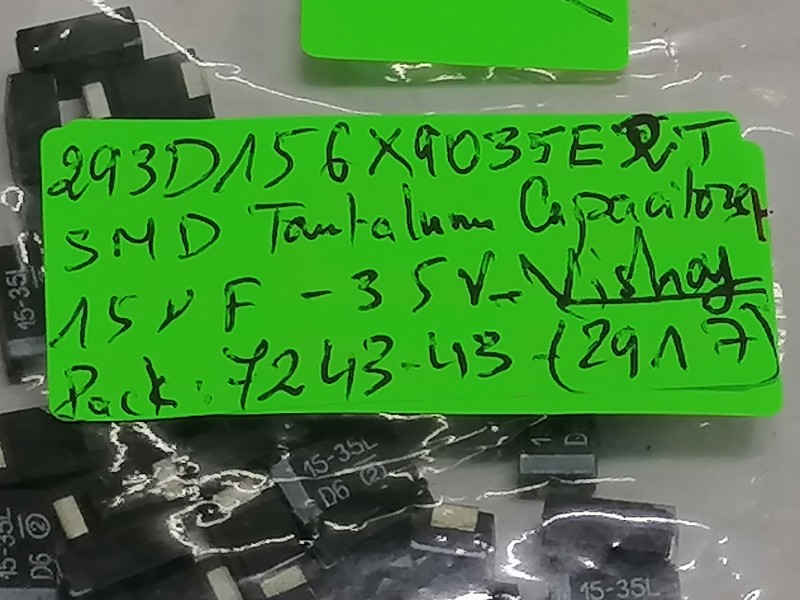 293D156X9035E2T
SMD Tantalum Capacitors
15µF - 35V - Vishay
Pack: 7243-43 (2917)
15-35L
15-35L
D6 ②
1
D
15-35L
D6 ②
15-35L